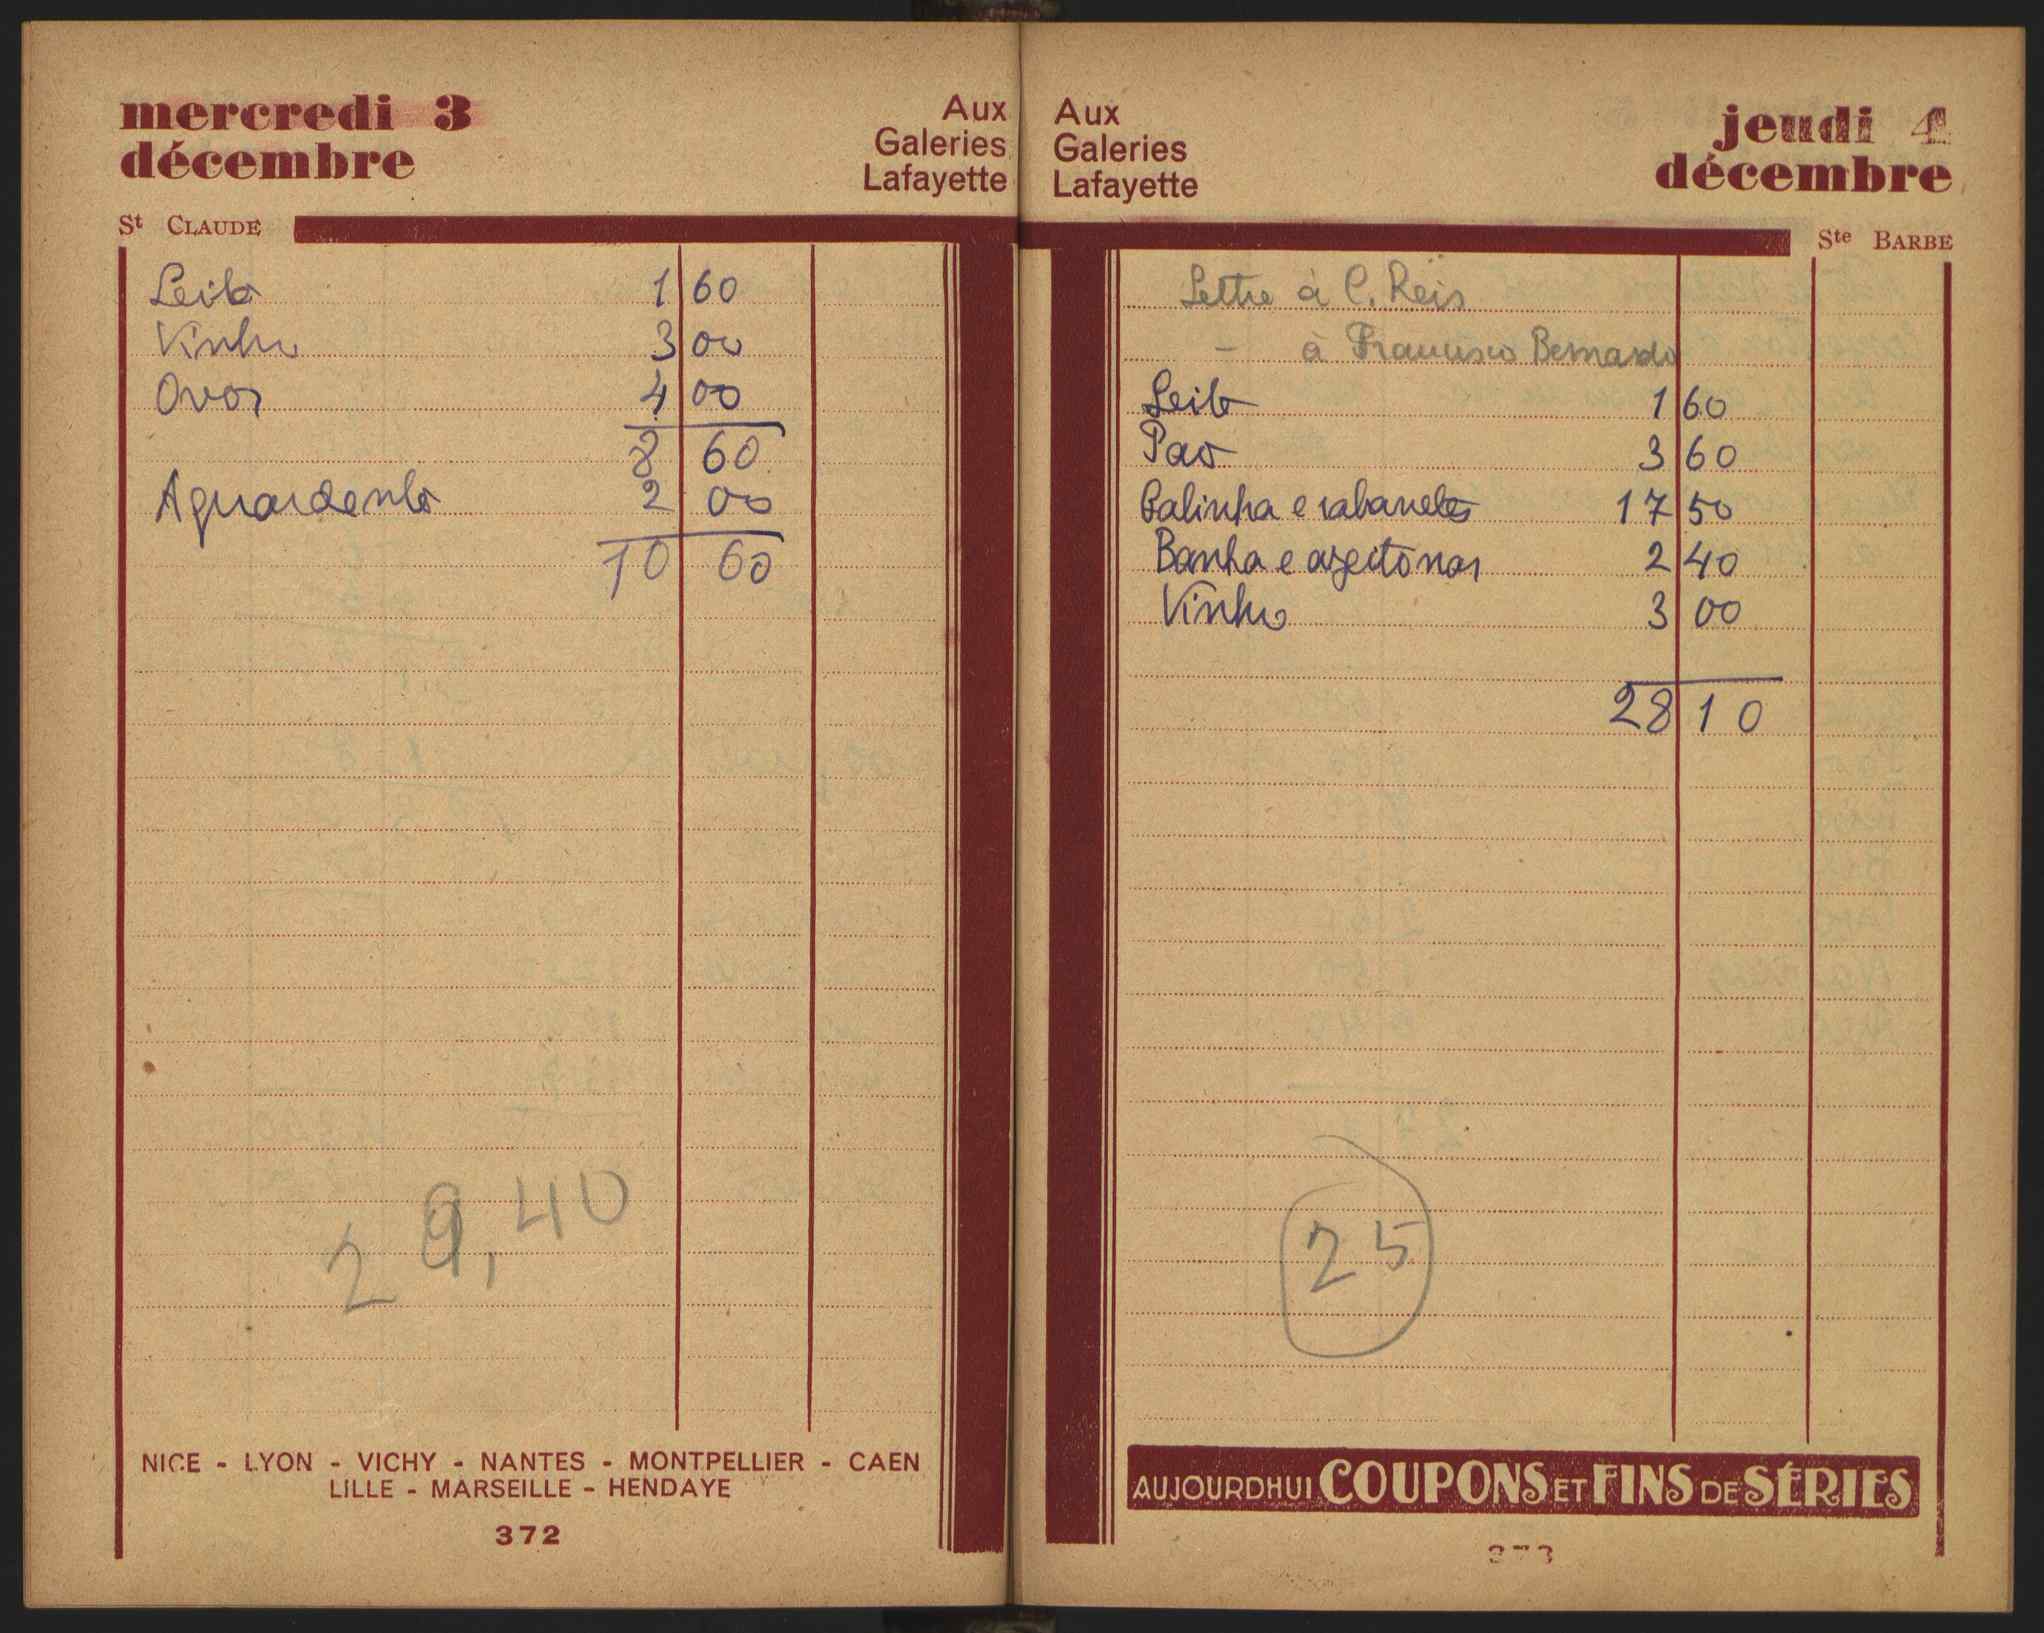 mercredi 3
décembre
Aux
Galeries
Lafayette
St CLAUDE
Leite 1 60
Vinho 3 00
Ovos 4 00
8 60
Aguardente 2 00
10 60
29,40
NICE - LYON - VICHY - NANTES - MONTPELLIER - CAEN
LILLE - MARSEILLE - HENDAYE
372
Aux
Galeries
Lafayette
jeudi 4
décembre
Ste BARBE
Lettre à C. Reis
- à Francisco Bernardo
Leite 1 60
Pao 3 60
Galinha e rabanetes 17 50
Banha e azeitonas 2 40
Vinho 3 00
28 10
25
AUJOURDHUI COUPONS ET FINS DE SÉRIES
373